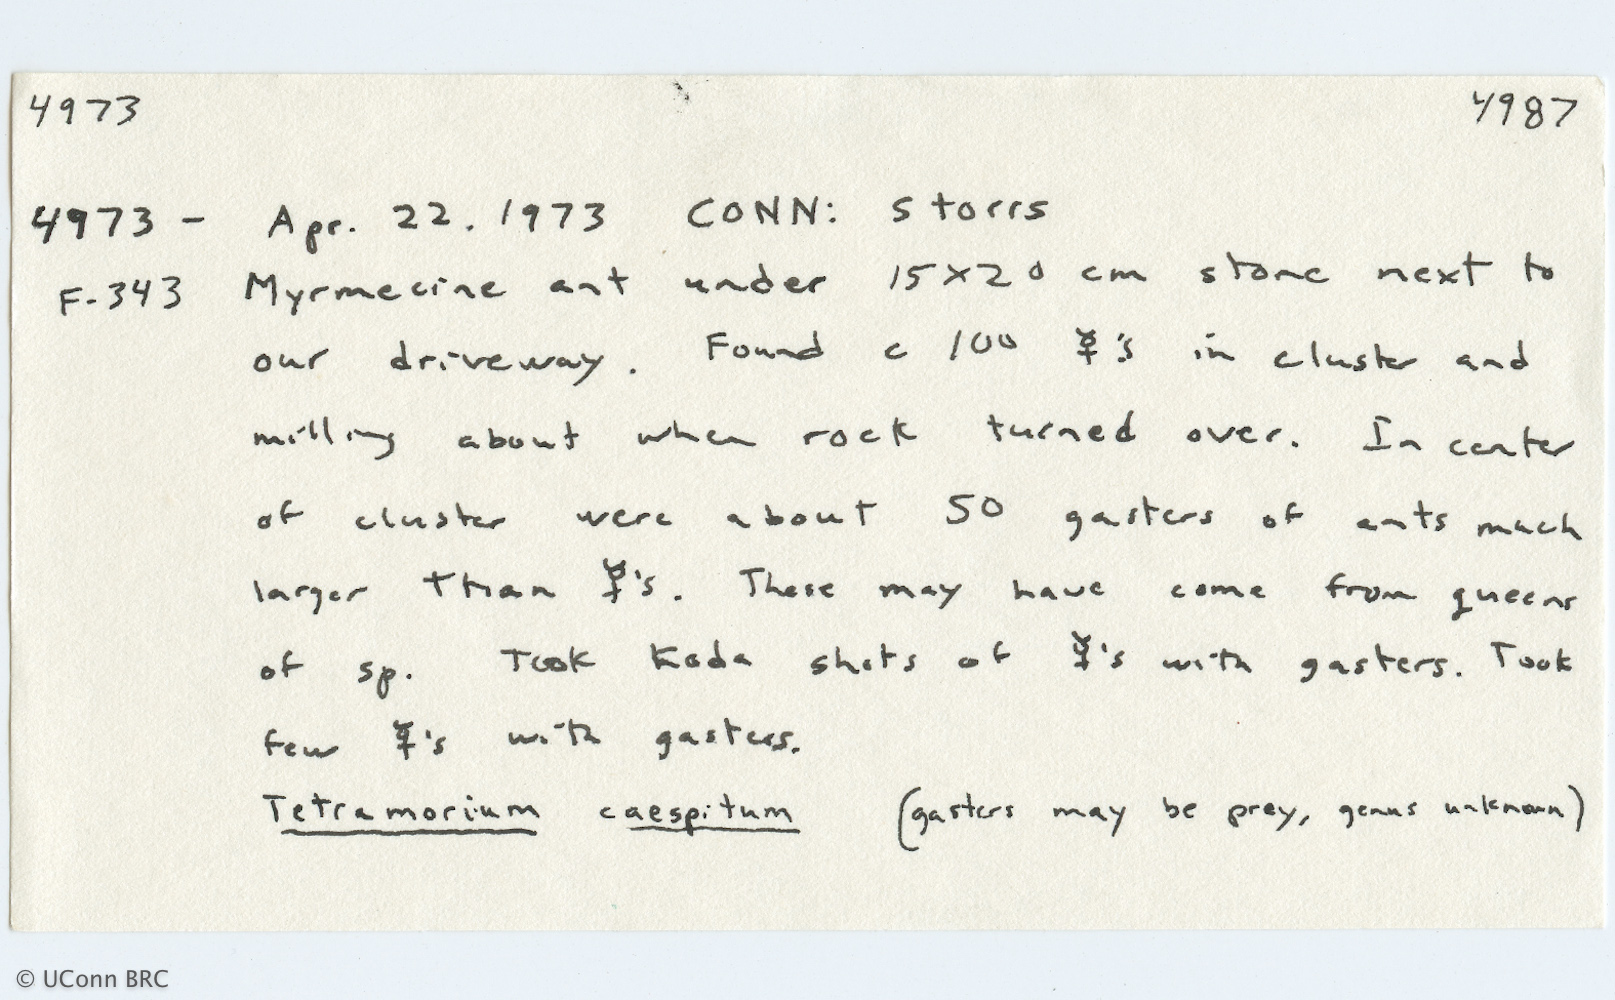 4973 4987
4973 - Apr. 22. 1973 CONN: Storrs
F-343 Myrmecine ant under 15x20 cm stone next to
our driveway. Found c 100 ☿'s in cluster and
milling about when rock turned over. In center
of cluster were about 50 gasters of ants much
larger than ☿'s. These may have come from queens
of sp. Took Koda shots of ☿'s with gasters. Took
few ☿'s with gasters.
Tetramorium caespitum (gasters may be prey, genus unknown)
© UConn BRC